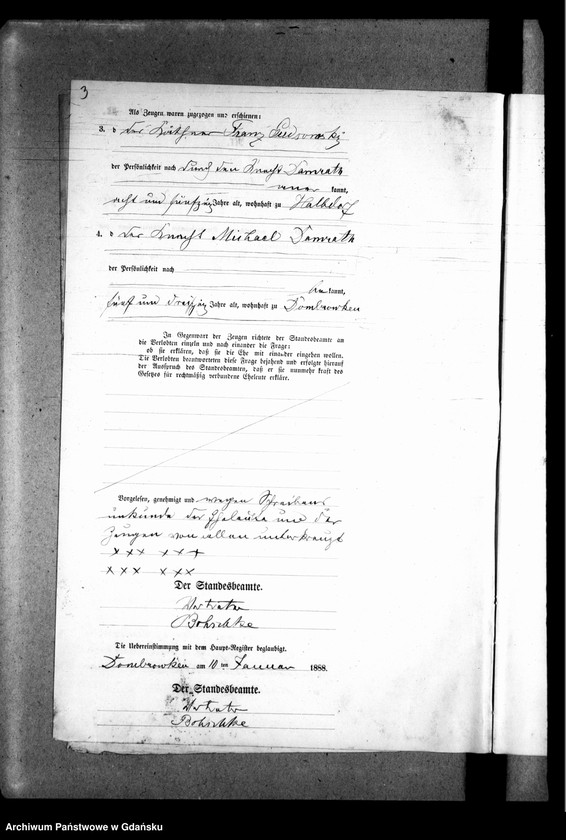 3
Als Zeugen waren zugezogen und erschienen:
3. der Käthner Franz
der Persönlichkeit nach durch den Knecht Damrath
kannt,
acht und fünfzig Jahre alt, wohnhaft zu Halbdorf
4. der Knecht Michael Damrath
der Persönlichkeit nach
bekannt,
fünf und dreißig Jahre alt, wohnhaft zu Dombrowken
In Gegenwart der Zeugen richtete der Standesbeamte an
die Verlobten einzeln und nach einander die Frage:
ob sie erklären, daß sie die Ehe mit einander eingehen wollen.
Die Verlobten beantworteten diese Frage bejahend und erfolgte hierauf
der Ausspruch des Standesbeamten, daß er sie nunmehr kraft des
Gesetzes für rechtmäßig verbundene Eheleute erkläre.
Vorgelesen, genehmigt und wegen Schreibens
unkunde der Eheleute und der
Zeugen von allen unterkreuzt
××× ×××
××× ×××
Der Standesbeamte.
Vertreter
Der Standesbeamte.
Die Uebereinstimmung mit dem Haupt-Register beglaubigt.
Dombrowken am 10 ten Januar 1888.
Der Standesbeamte.
Vertreter
Archiwum Państwowe w Gdańsku